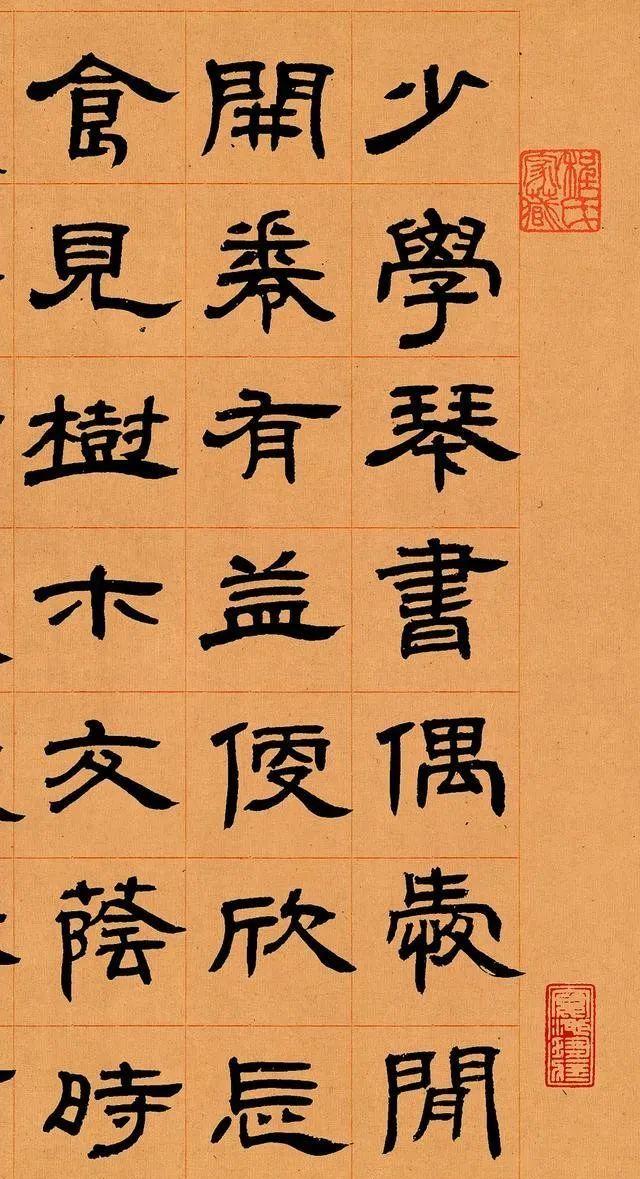 程氏家藏
少學琴書偶愛閒
開卷有益便欣忘
食見樹木交蔭時